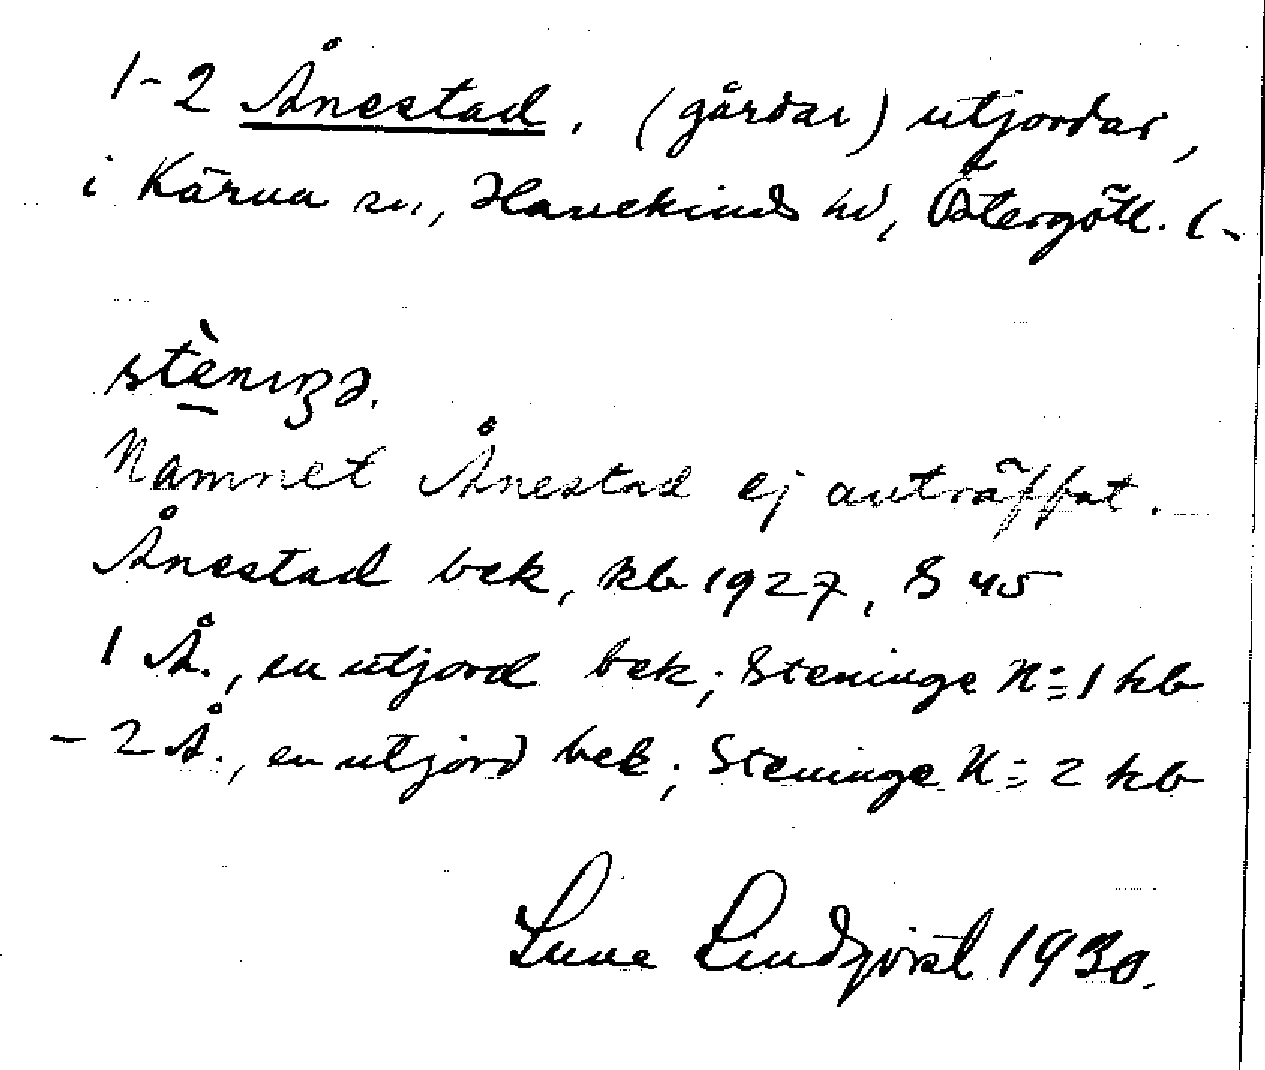 1-2 Ånestad, (gårdar) utjordar,
i Kärna sn, Hanekinds hd, Östergötl. (-
stèniŋə.
Namnet Ånestad ej anträffat.
Ånestad bek, kb 1927, S 45
1 Å., en utjord bek; Steninge N:= 1 kb
- 2 Å., en utjord bek; Steninge N:= 2 kb
Sune Lindqvist 1930.